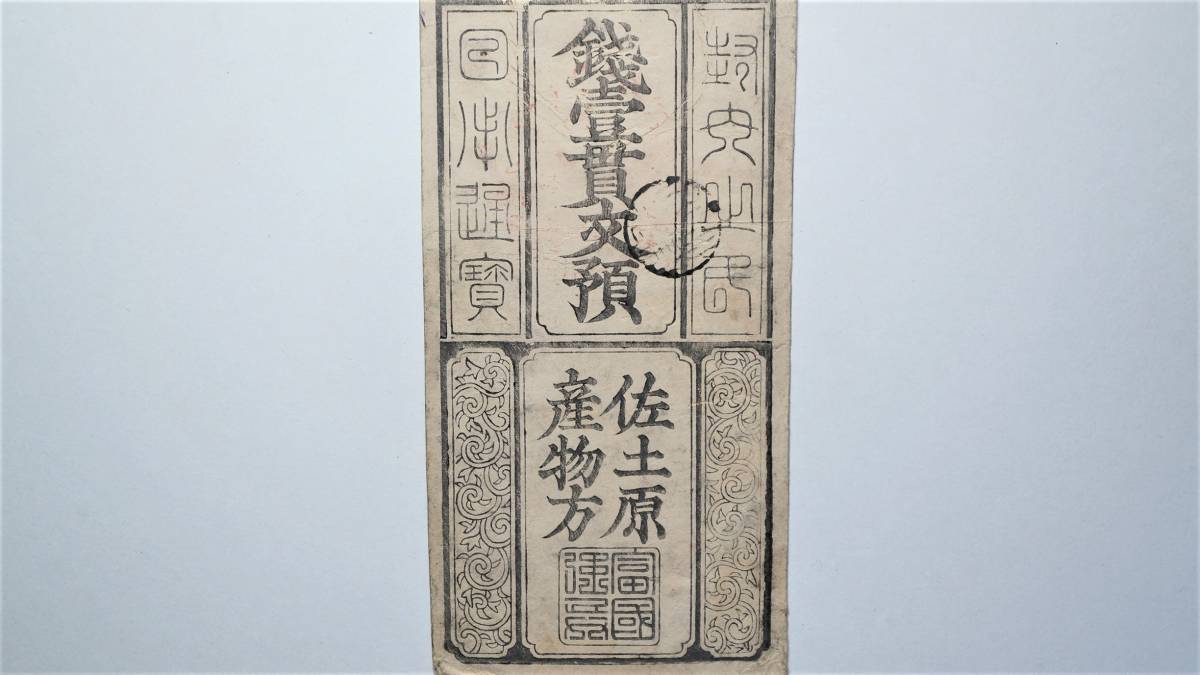 封内之民
錢壹貫文預
日本通寶
佐土原
産物方
富國
強兵